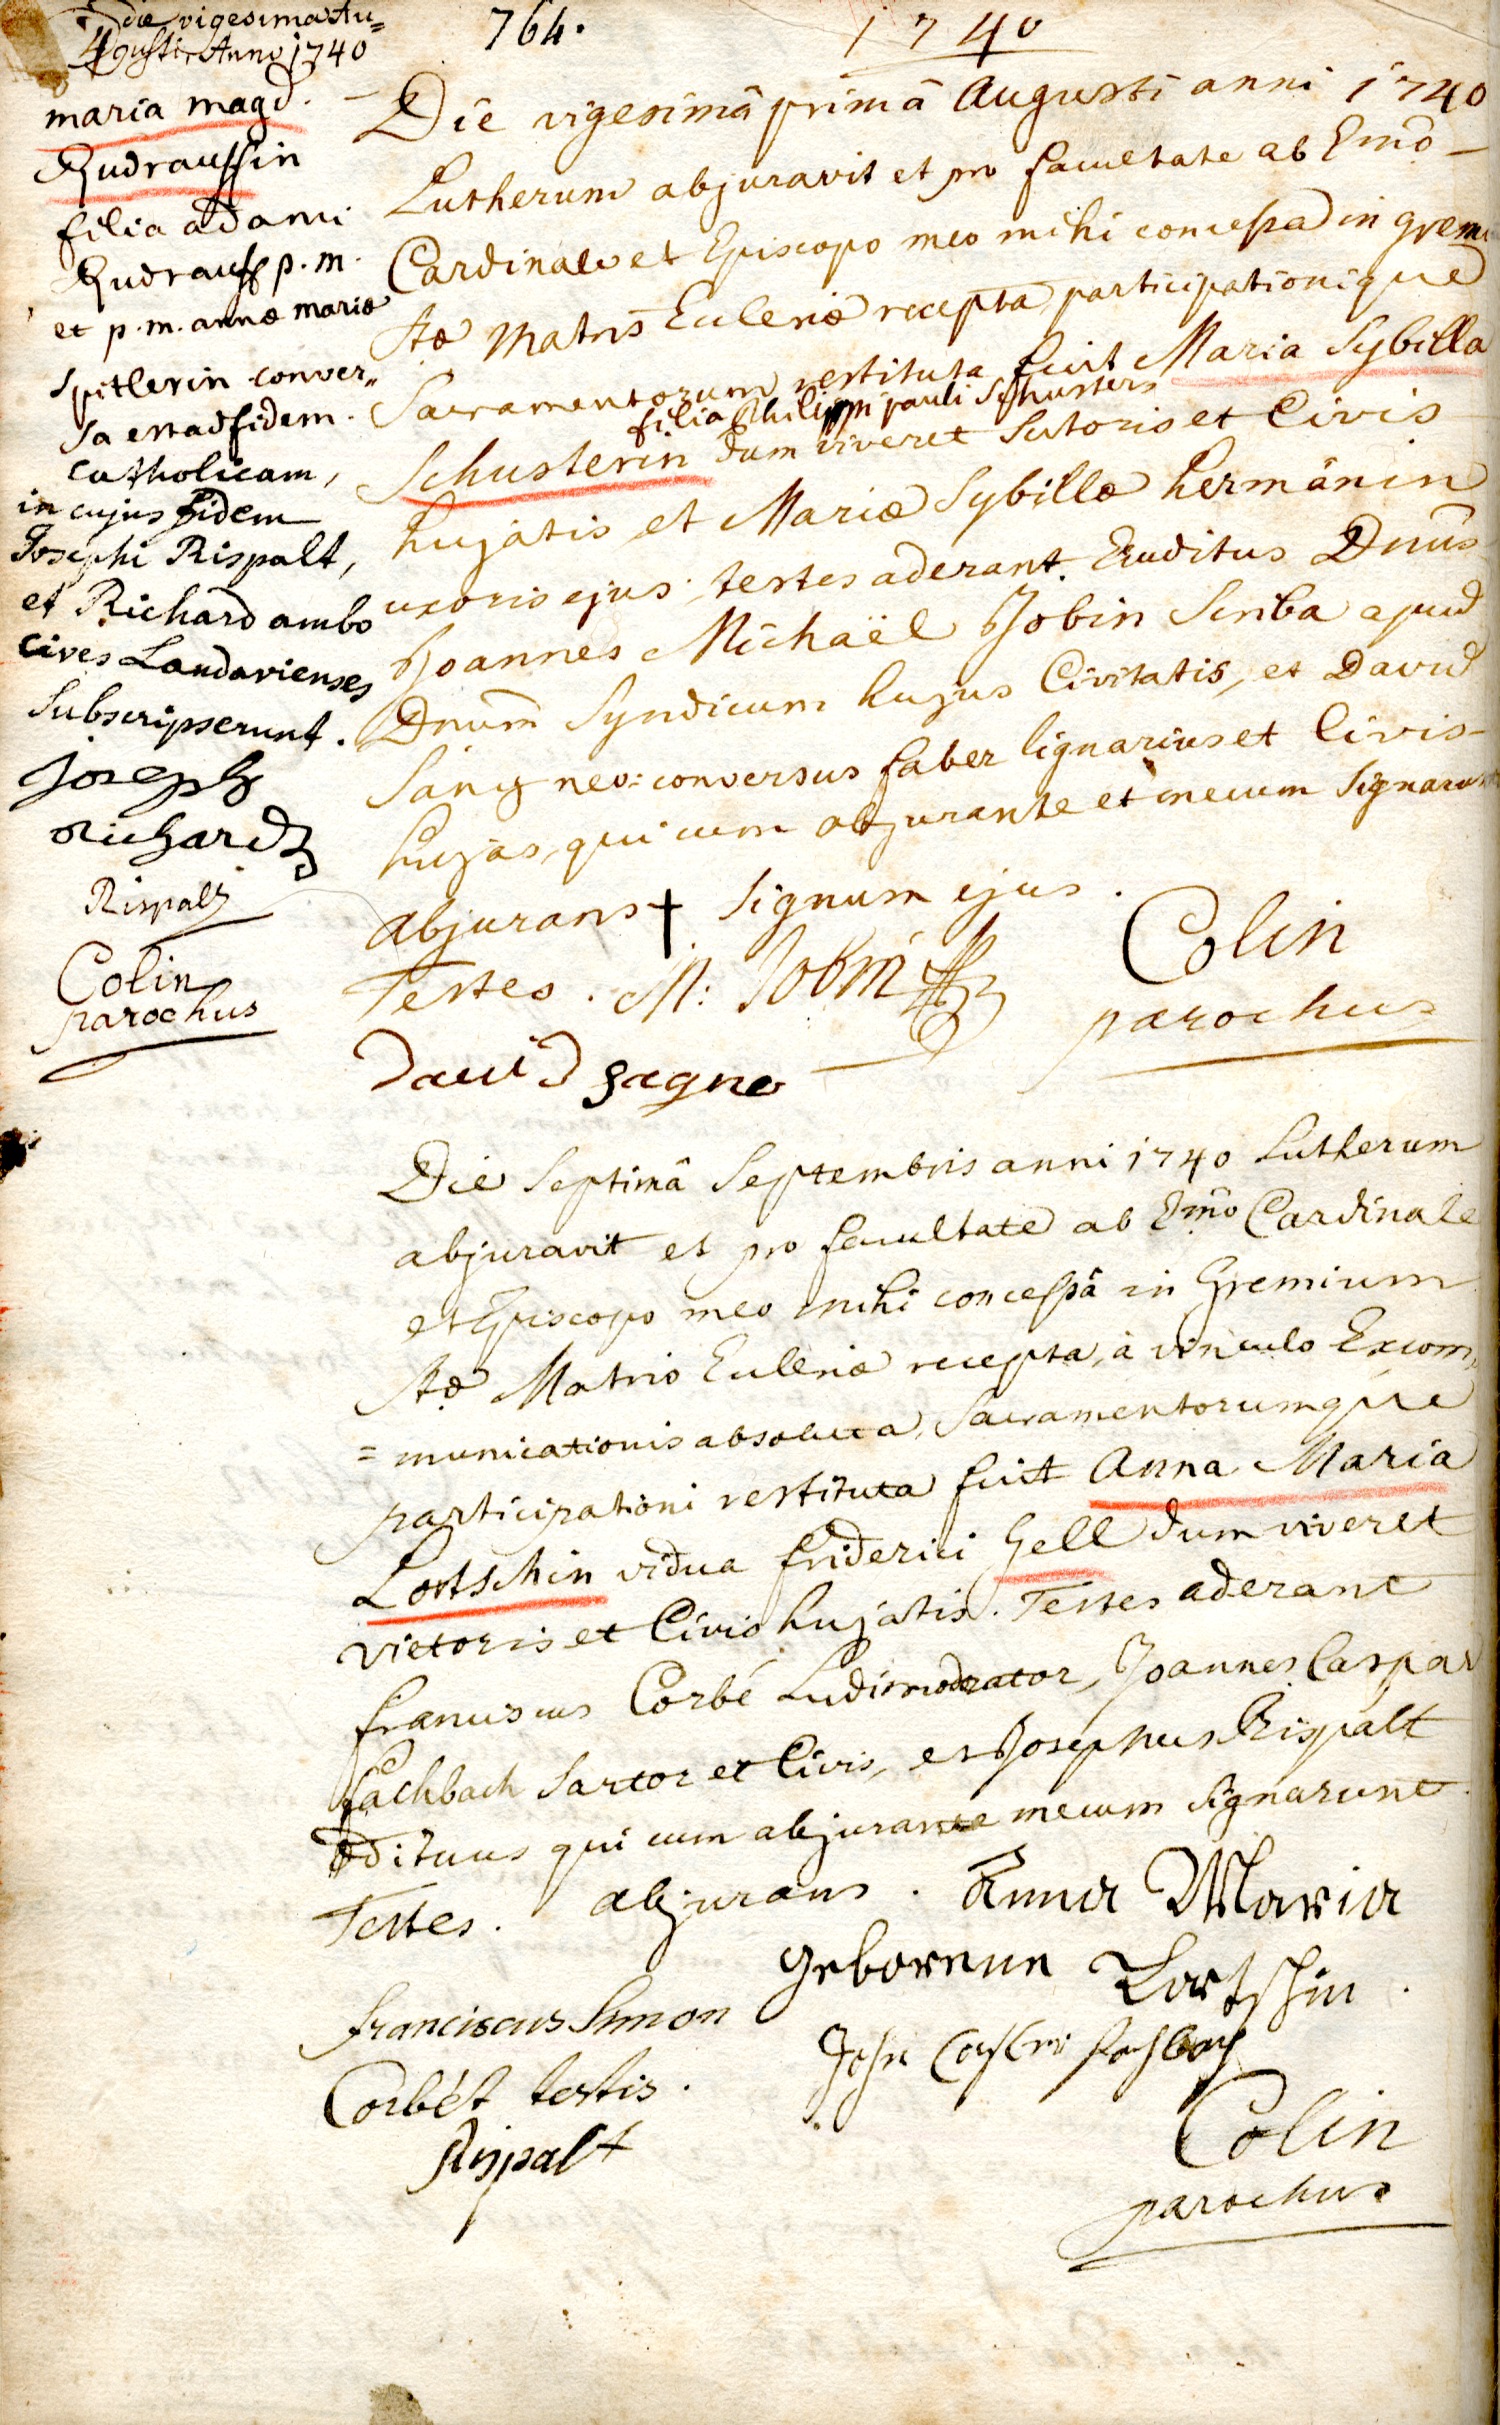 764.
1740
Die vigesima Au=
gusti Anno 1740
maria magd.
Rudrauffin
filia adami
Rudrauff p. m.
et p. m. annæ mariæ
Spitlerin conver„
sa est ad fidem
catholicam,
in cujus fidem
Josephi Rispalt,
et Richard ambo
cives Landavienses
Subscripserunt.
joseph
Richard
Rispalt
Colin
parochus
Die vigesimâ primâ Augusti anni 1740
Lutherum abjuravit et pro facultate ab Emo
Cardinale et Episcopo meo mihi concessa in gremi
stæ Matris Ecclesiæ recepta participationique
Sacramentorum restituta fuit Maria Sybilla
filia Philippi pauli Schusters
Schusterin dum viveret Sutoris et Civis
hujatis et Mariæ Sybillæ hermânin
uxoris ejus; testes aderant Eruditus Dnus
Joannes Michaël Jobin Scriba apud
Dnum Syndicum hujus Civitatis, et David
neo: conversus faber lignarius et Civis
hujas, qui cum abjurante et mecum Signarunt
abjurans † Signum ejus.
Testes. M: Jobin
Colin
parochus
David
Die Septimâ Septembris anni 1740 Lutherum
abjuravit et pro facultate ab Emo Cardinale
et Episcopo meo mihi concessâ in Gremium
stæ Matris Ecclesiæ recepta, à vinculo Excom„
=municationis absoluta, Sacramentorumque
participationi restituta fuit Anna Maria
Lortschin vidua friderici Gell dum viveret
vietoris et Civis hujatis. Testes aderant
franciscus Corbé Ludimoderator, Joannes Caspar
fachbach Sartor et Civis, et Josephus Rispalt
ædituus qui cum abjurante mecum Signarunt.
Testes. abjurans. Anna Maria
geborenne Lortschin.
franciscus Simon
Corbét testis.
Rispalt
Colin
parochus